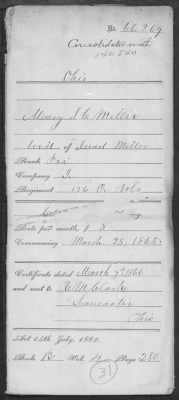 No. 66,769
Consolidated with
140540
Ohio
Mary J. C. Miller
Wid. of Israel Miller
Rank Pri
Company I
Regiment 116 O. Vols
Rate per month, $ 8
Commencing March 25, 1865
Certificate dated March 7th 1866
and sent to R M Clarke
Lancaster
Ohio
Act 14th July, 1862.
Book B Vol. 4 Page 280
31